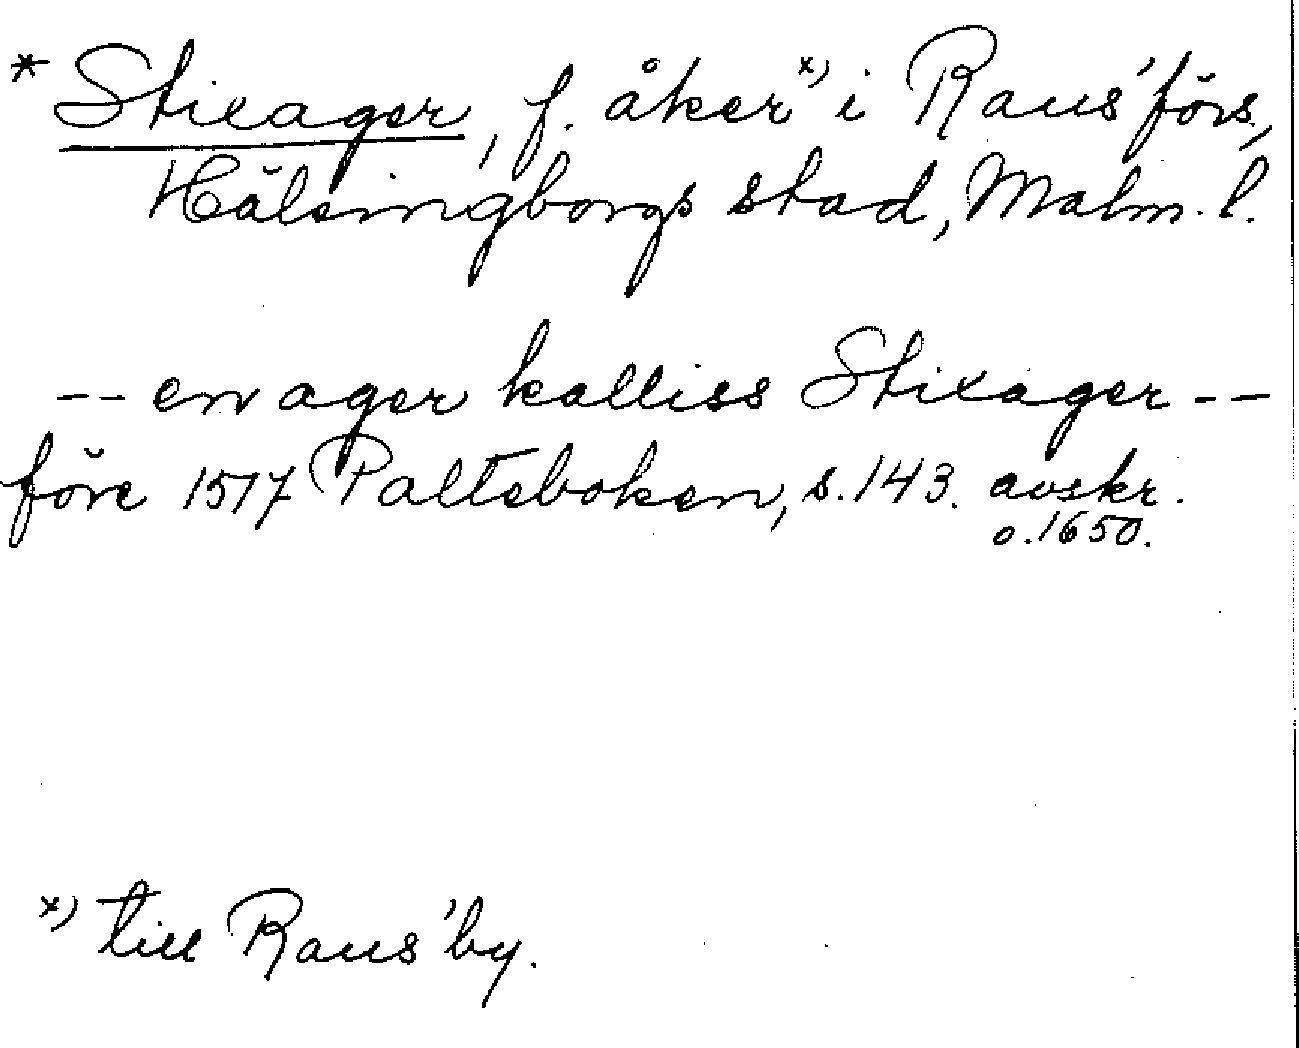 * Stixager, f. åker x) i Raus' förs.,
Hälsingborgs stad, Malm. l.
-- en ager kalliss Stixager --
före 1517 Palteboken, s. 143. avskr.
o. 1650.
x) till Raus' by.